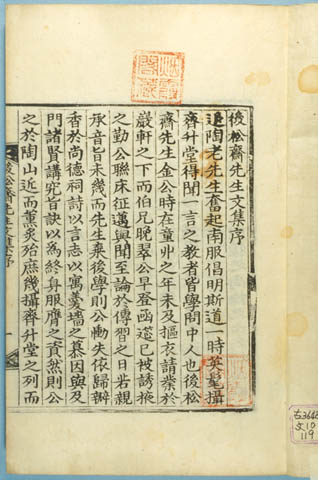 後松齋先生文集序
退陶老先生奮起南服倡明斯道一時英髦攝
齊升堂得聞一言之敎者皆學問中人也後松
齋先生金公時在童丱之年未及摳衣請業於
巖軒之下而伯兄晚翠公早登函筵已被誘掖
之勤公聯床征邁與聞至論於傳習之日若親
承音旨未幾而先生棄後學則公慟失依歸辦
香於尚德祠詩以言志以寓羹墻之慕因與及
門諸賢講究旨訣以為終身服膺之資然則公
之於陶山近而薰炙殆庶幾攝齊升堂之列而
後松齋先生文集序
一
古3648
文10
119